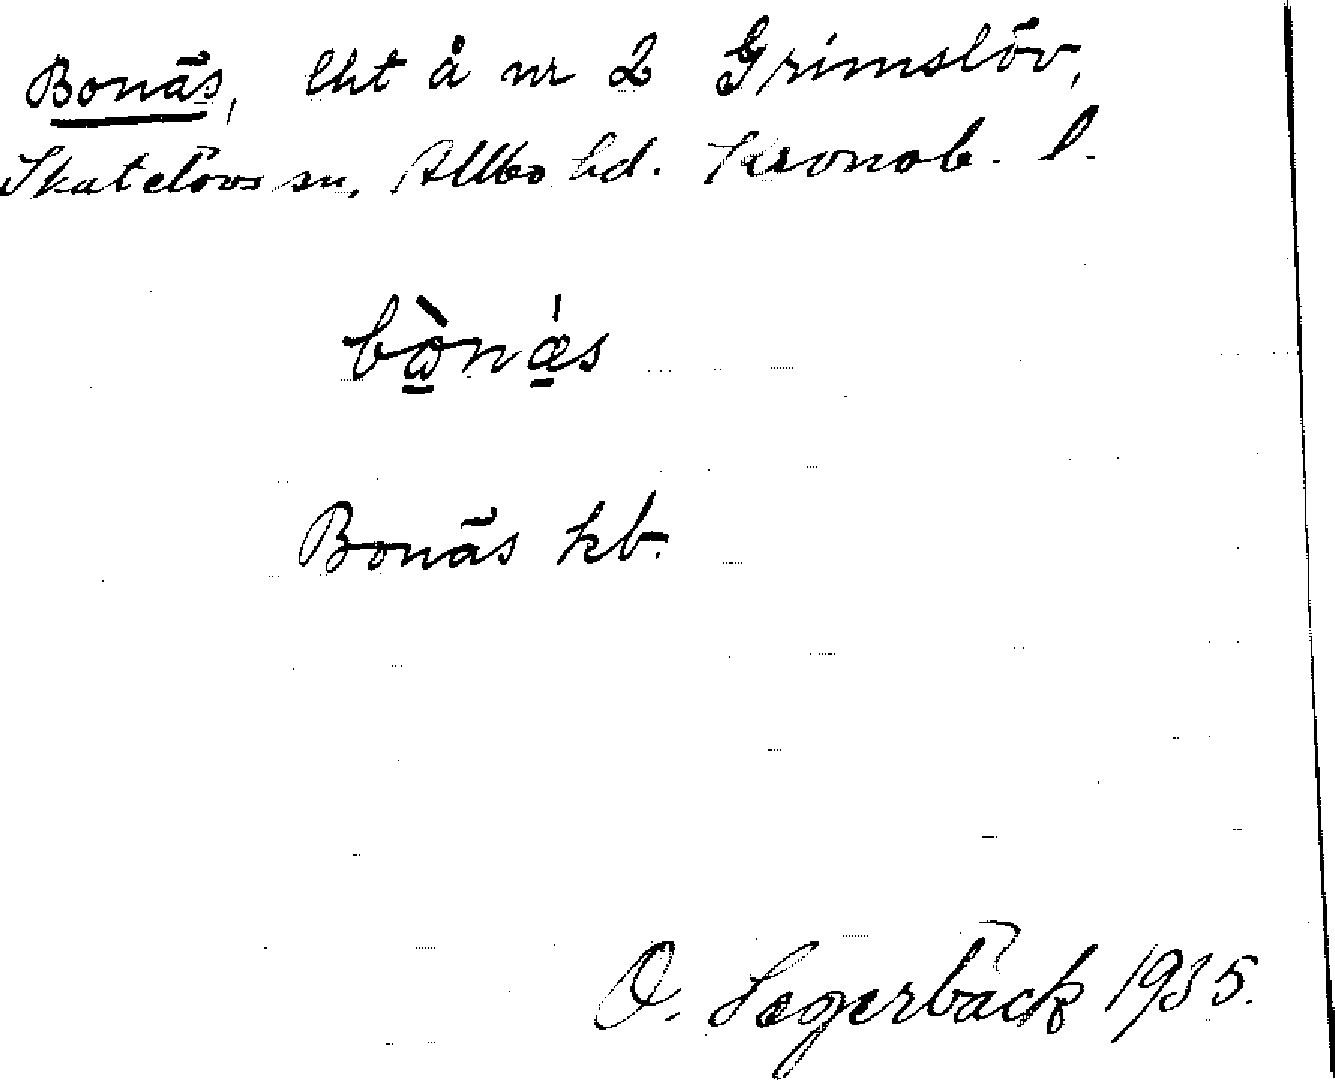 Bonäs, lht å nr 2 Grimslöv,
Skatelövs sn, Allbo hd. Kronob. l.
bò̱nǽ̱s
Bonäs kb.
O. Segerbäck 1935.